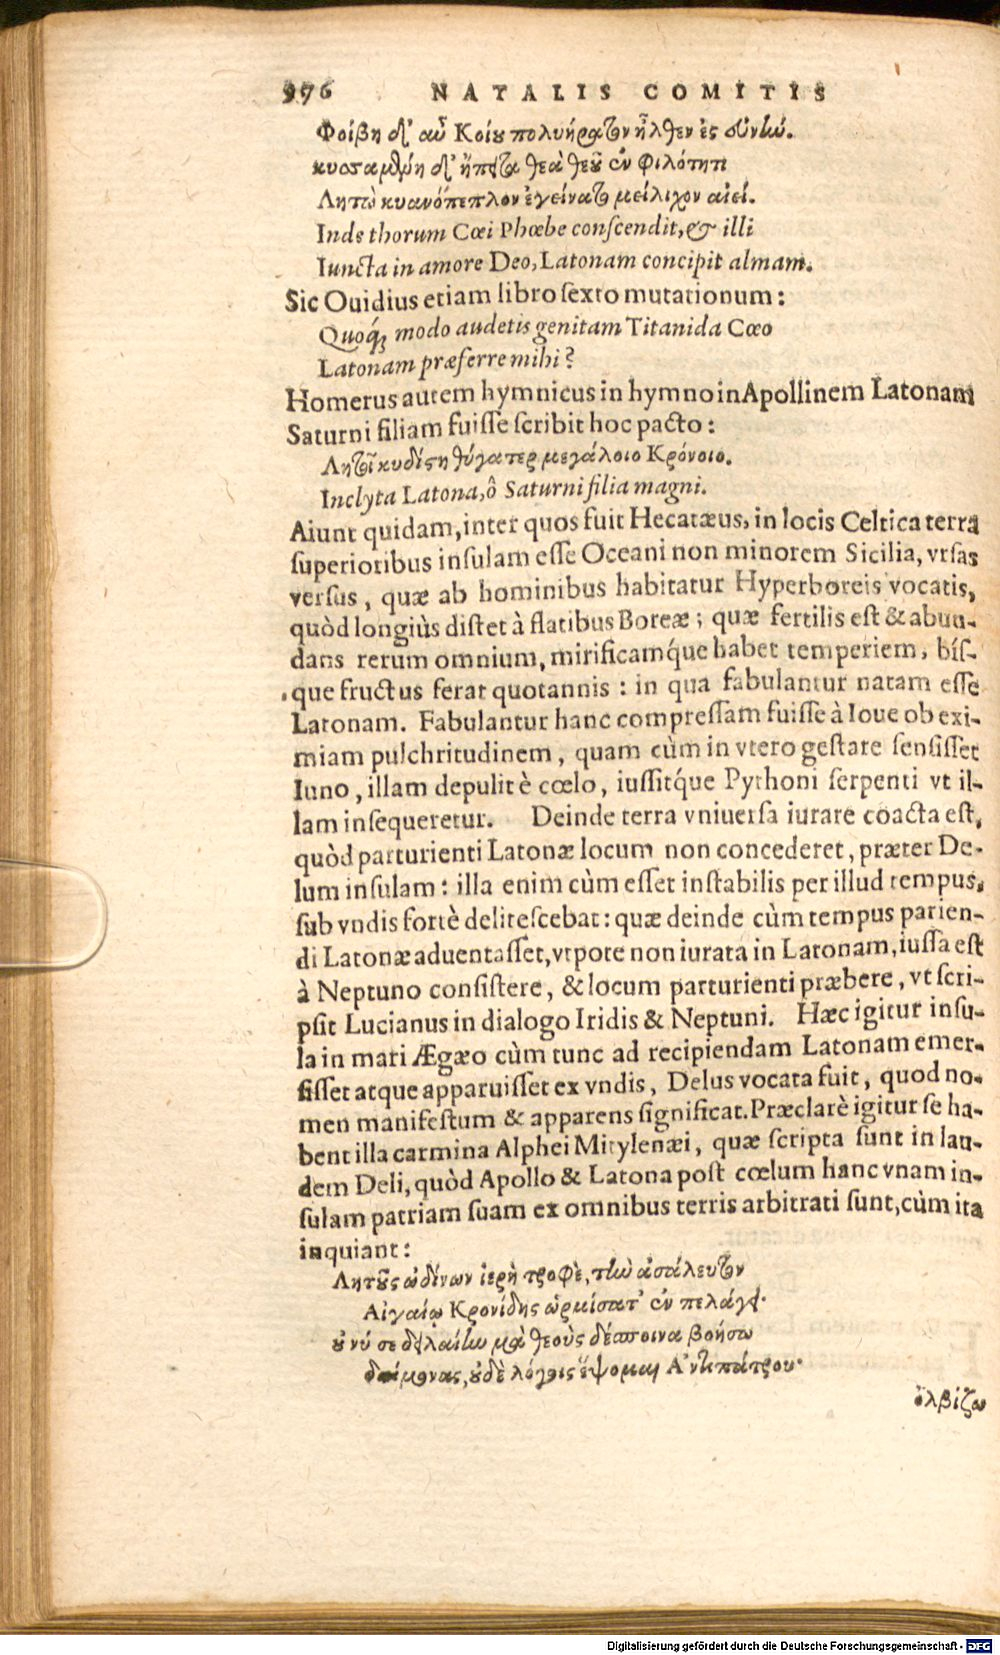 976 NATALIS COMITIS
Φοίβη δ' αὖ Κοίου πολυήρατον ἦλθεν ἐς εὐνήν.
κυσσαμένη δ' ἤπειτα θεὰ θεοῦ ἐν φιλότητι
Λητὼ κυανόπεπλον ἐγείνατο μείλιχον αἰεί.
Inde thorum Cœi Phœbe conscendit, & illi
Iuncta in amore Deo, Latonam concipit almam.
Sic Ouidius etiam libro sexto mutationum:
Quoq́; modo audetis genitam Titanida Cœo
Latonam præferre mihi?
Homerus autem hymnicus in hymno in Apollinem Latonam
Saturni filiam fuisse scribit hoc pacto:
Λητοῖ κυδίστη θύγατερ μεγάλοιο Κρόνοιο.
Inclyta Latona, ô Saturni filia magni.
Aiunt quidam, inter quos fuit Hecatæus, in locis Celtica terra
superioribus insulam esse Oceani non minorem Sicilia, vrsas
versus, quæ ab hominibus habitatur Hyperboreis vocatis,
quòd longiùs distet à flatibus Boreæ; quæ fertilis est & abun-
dans rerum omnium, mirificamq́ue habet temperiem, bís-
que fructus ferat quotannis: in qua fabulantur natam esse
Latonam. Fabulantur hanc compressam fuisse à Ioue ob exi-
miam pulchritudinem, quam cùm in vtero gestare sensisset
Iuno, illam depulit è cœlo, iussitq́ue Pythoni serpenti vt il-
lam insequeretur. Deinde terra vniuersa iurare coacta est,
quòd parturienti Latonæ locum non concederet, præter De-
lum insulam: illa enim cùm esset instabilis per illud tempus,
sub vndis fortè delitescebat: quæ deinde cùm tempus parien-
di Latonæ aduentasset, vtpote non iurata in Latonam, iussa est
à Neptuno consistere, & locum parturienti præbere, vt scri-
psit Lucianus in dialogo Iridis & Neptuni. Hæc igitur insu-
la in mari Ægæo cùm tunc ad recipiendam Latonam emer-
sisset atque apparuisset ex vndis, Delus vocata fuit, quod no-
men manifestum & apparens significat. Præclarè igitur se ha-
bent illa carmina Alphei Mitylenæi, quæ scripta sunt in lau-
dem Deli, quòd Apollo & Latona post cœlum hanc vnam in-
sulam patriam suam ex omnibus terris arbitrati sunt, cùm ita
inquiant:
Λητοῦς ὠδίνων ἱερὴ τροφὲ, τὴν ἀσάλευτον
Αἰγαίῳ Κρονίδης ὡρμίσατ' ἐν πελάγει·
οὔ νύ σε δειλαίην μὰ θεοὺς δέσποινα βοήσω
δαίμονας, οὐδὲ λόγοις ἕψομαι Ἀντιπάτρου·
ὀλβίζω
Digitalisierung gefördert durch die Deutsche Forschungsgemeinschaft - DFG